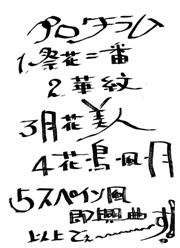 プログラム
1.祭花二番
2華紋
3月花美人
4花鳥風月
5スペイン風
即興曲
以上でぇ〜〜〜す!